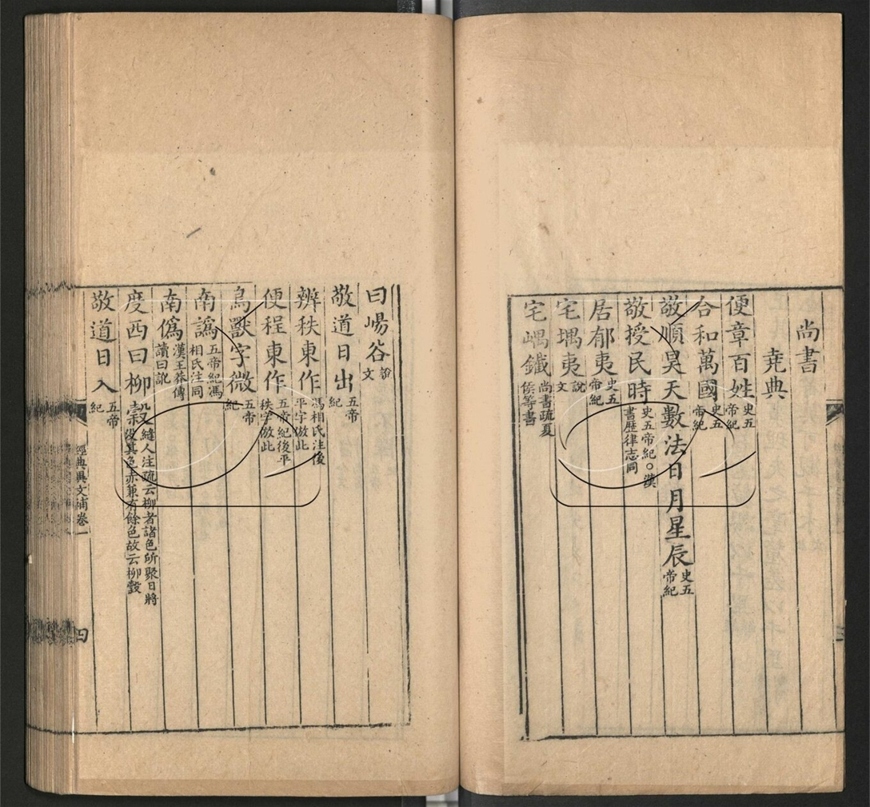 尚書
堯典
便章百姓史五帝紀
合和萬國史五帝紀
敬順昊天數法日月星辰史五帝紀
敬授民時史五帝紀○漢書歷律志同
居郁夷史五帝紀
宅堣夷說文
宅嵎鐵尚書疏夏侯等書
曰崵谷說文
敬道日出五帝紀
辨秩東作馮相氏注後平字倣此
便程東作五帝紀後平秩字倣此
鳥獸字微五帝紀
南譌五帝紀馮相氏注同
南僞漢王莽傳讀曰訛
度西曰柳穀縫人注疏云柳者諸色所聚日將沒其色赤兼有餘色故云柳穀
敬道日入五帝紀
經典異文補卷一
四